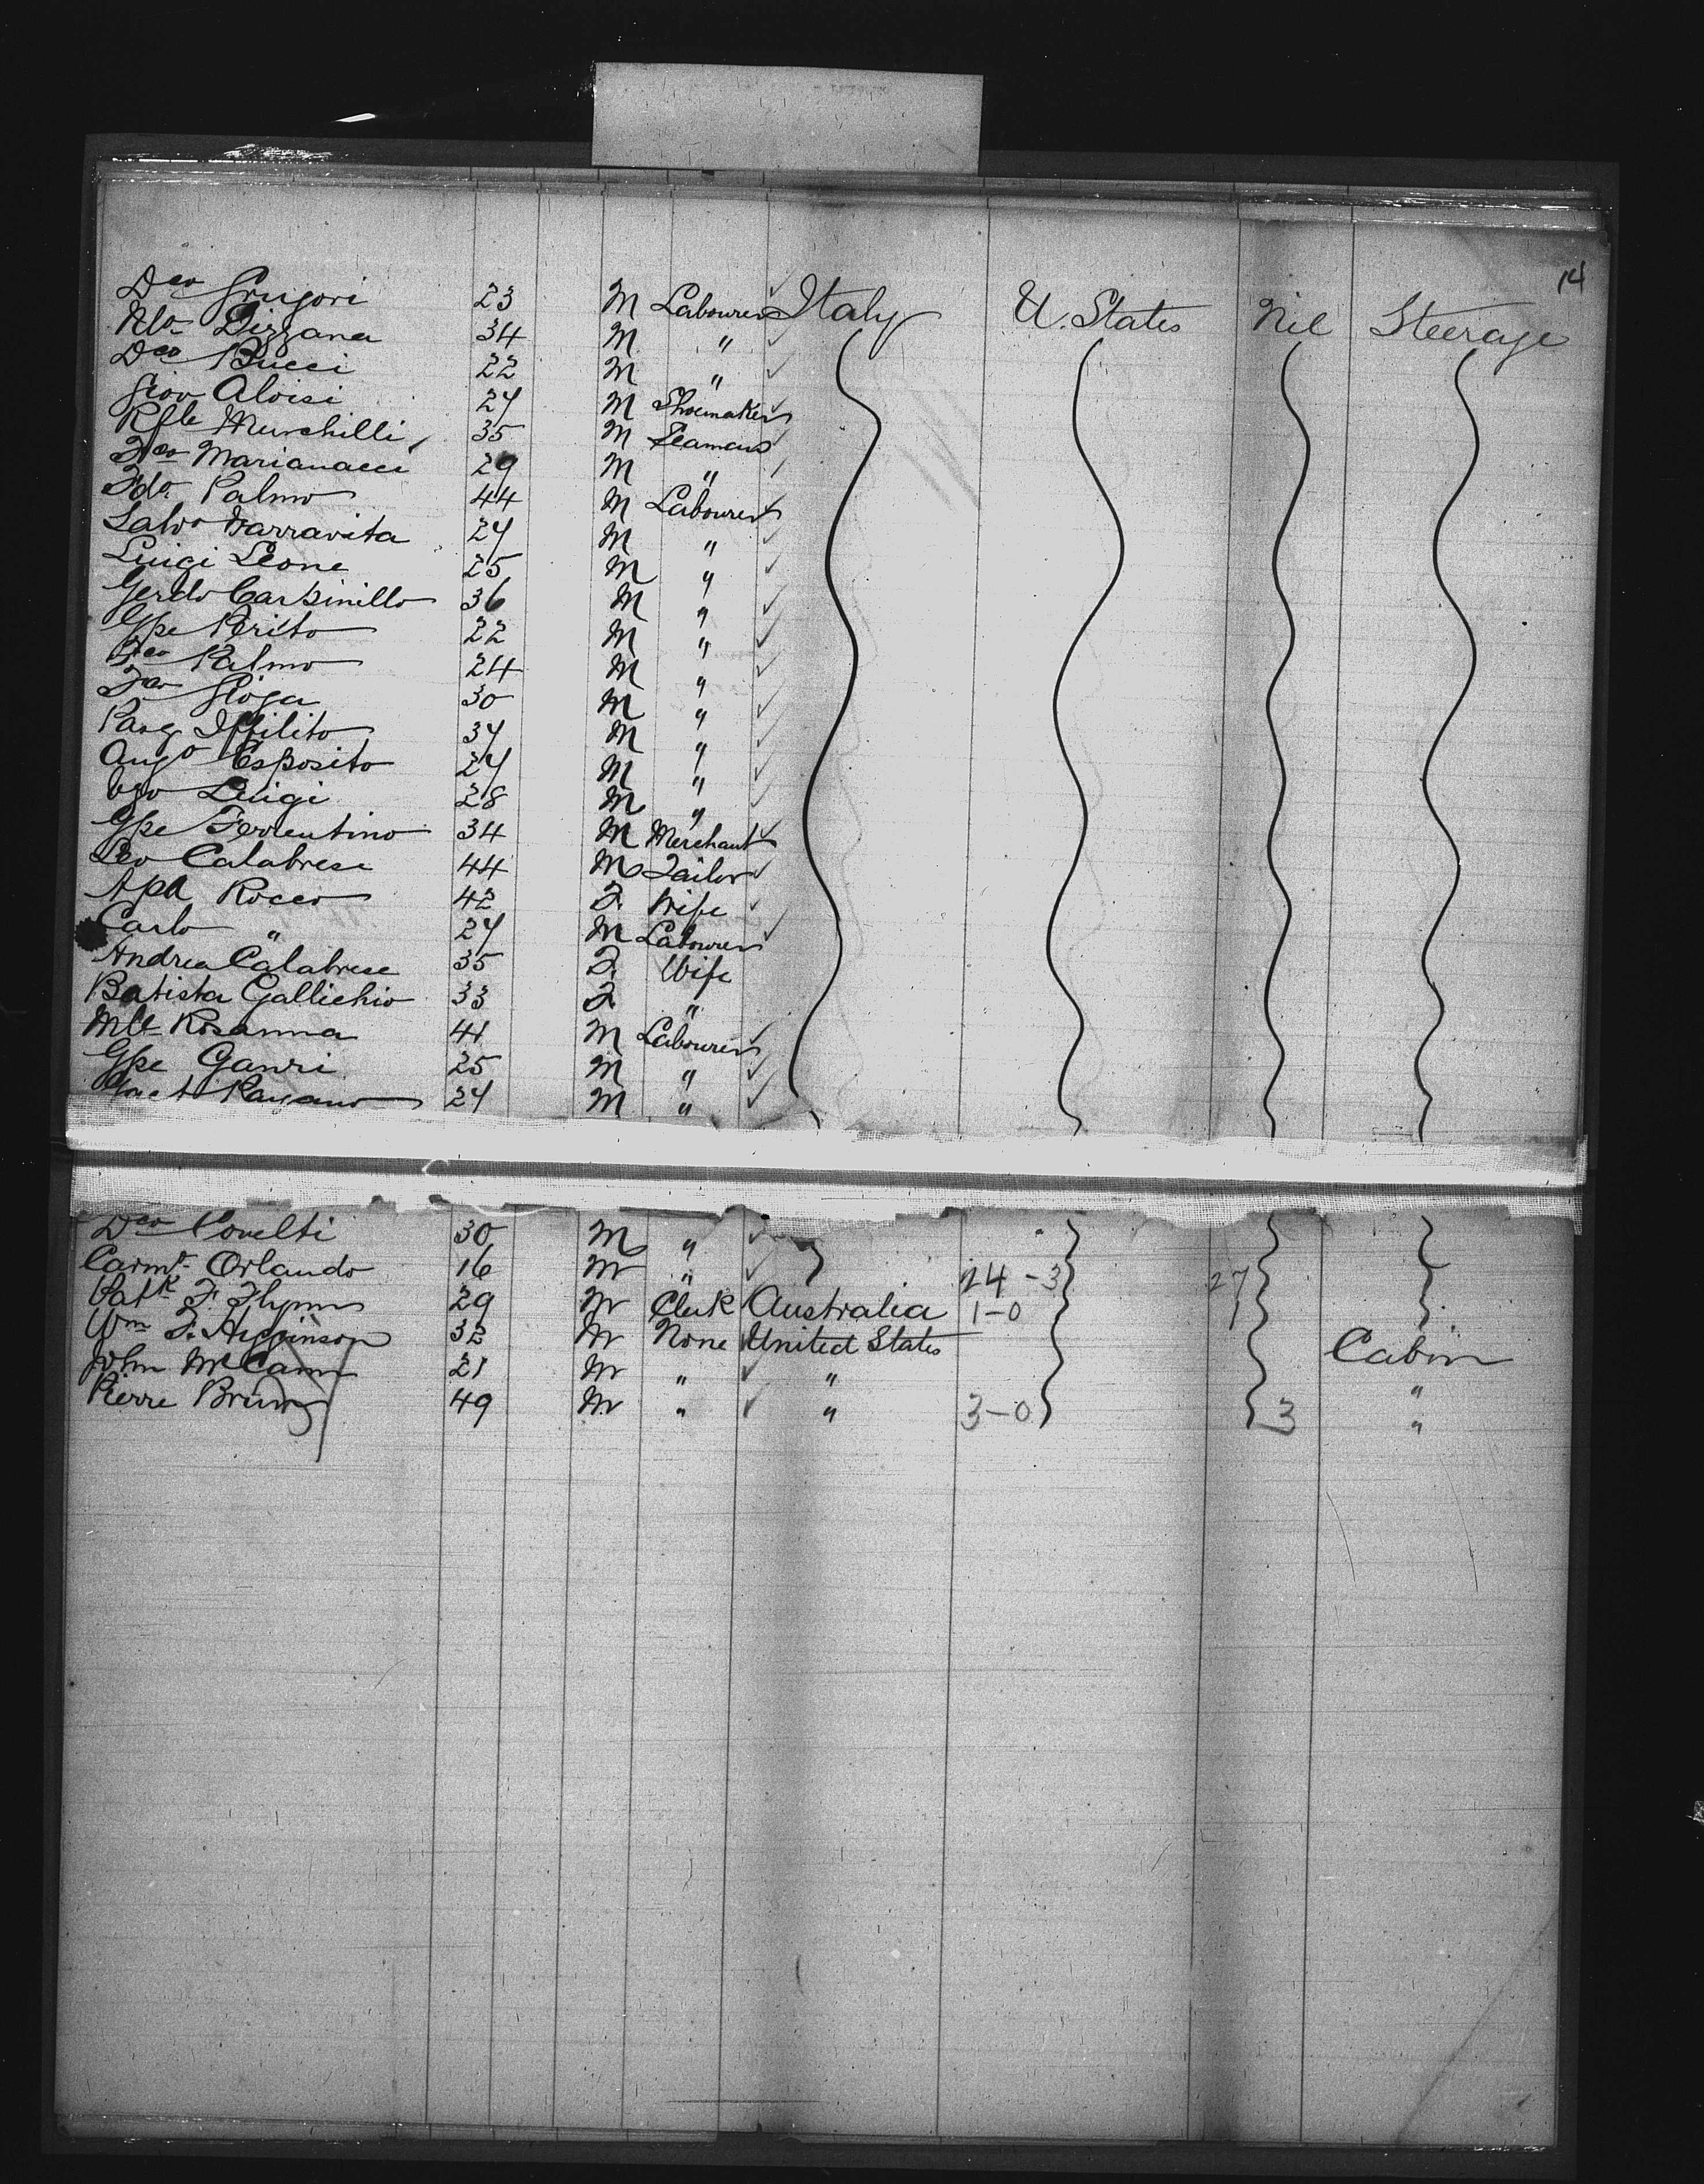 14
Dco Grigori 23 M Labourer Italy U. States Nil Steerage
Nla Dizzana 34 M "
Dco Bucci 22 M "
Giov Aloisi 24 M Shoemaker
Rfle Murchilli 35 M Seaman
Fco Marianacci 29 M "
Fdo Palmo 44 M Labourer
Salvo Varravita 24 M "
Luigi Leone 25 M "
Gerdo Carbinillo 36 M "
Gpe Perito 22 M "
Fco Palmo 24 M "
Fco Gioga 30 M "
Pasq Ippilito 34 M "
Augo Esposito 24 M "
Luigi 28 M "
Gpe Ferrentino 34 M Merchant
Leo Calabrese 44 M Tailor
Rocco 42 F. Wife
Carlo " 24 M Labourer
Andrea Calabrese 35 F. Wife
Batista Gallichio 33 F. "
Mle Rosanna 41 M Labourer
Gpe Ganri 25 M "
Ragano 24 M "
Dco Covelti 30 M "
Carmo Orlando 16 M " 24-3 27
Patk F. Flynn 29 M Clerk Australia 1-0 1
Wm F. Higginson 32 M None United States Cabin
John McCann 21 M " " "
Pierre Bruno 49 M " " 3-0 3 "